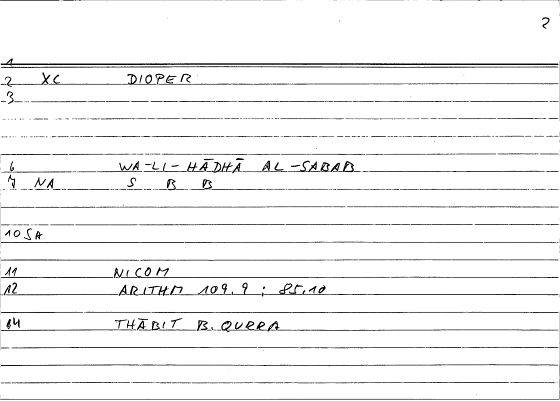 2
1
2 XC DIOPER
3
6 WA-LI-HĀDHĀ AL-SABAB
7 NA S B B
10 SA
11 NICOM
12 ARITHM 109.9 ; 85.10
14 THĀBIT B. QURRA